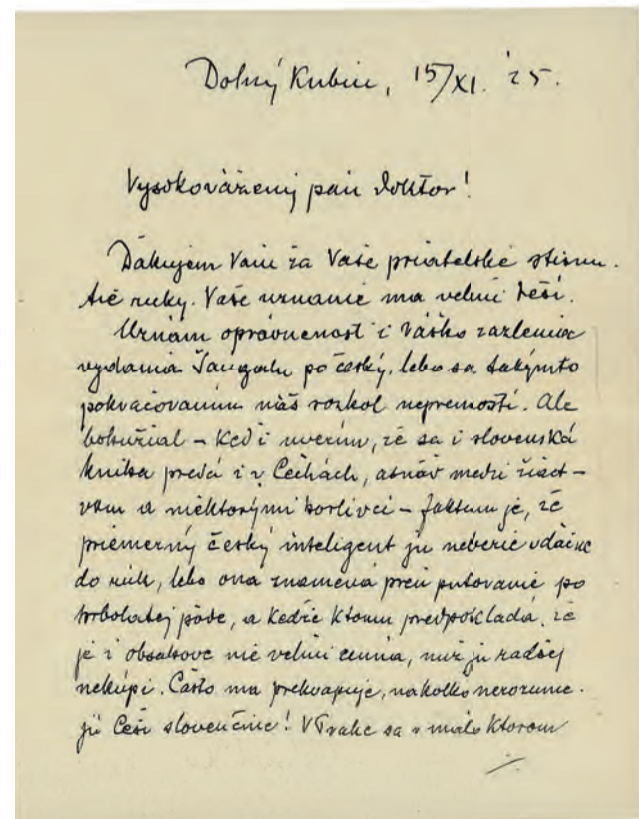 Dolný Kubín, 15/XI. '25.
Vysokovážený pán doktor!
Ďakujem Vám za Vaše priateľské stisnu-
tie ruky. Vaše uznanie ma veľmi teší.
Uznám oprávnenosť i Vášho zazlenia
vydania Šangalu po český, lebo sa takýmto
pokračovaním náš rozkol nepremostí. Ale
bohužiaľ – keď i uverím, že sa i slovenská
kniha predá i v Čechách, asnáď medzi žiact-
vom a niektorými horlivci – faktum je, že
priemerný český inteligent ju neberie vďačne
do rúk, lebo ona znamená preň putovanie po
hrboľatej pôde, a keďže ktomu predpokladá, že
je i obsahove nie veľmi cenná, nuž ju radšej
nekúpi. Často ma prekvapuje, nakoľko nerozume-
jú Česi slovenčine! V Prahe sa v málo ktorom
./.